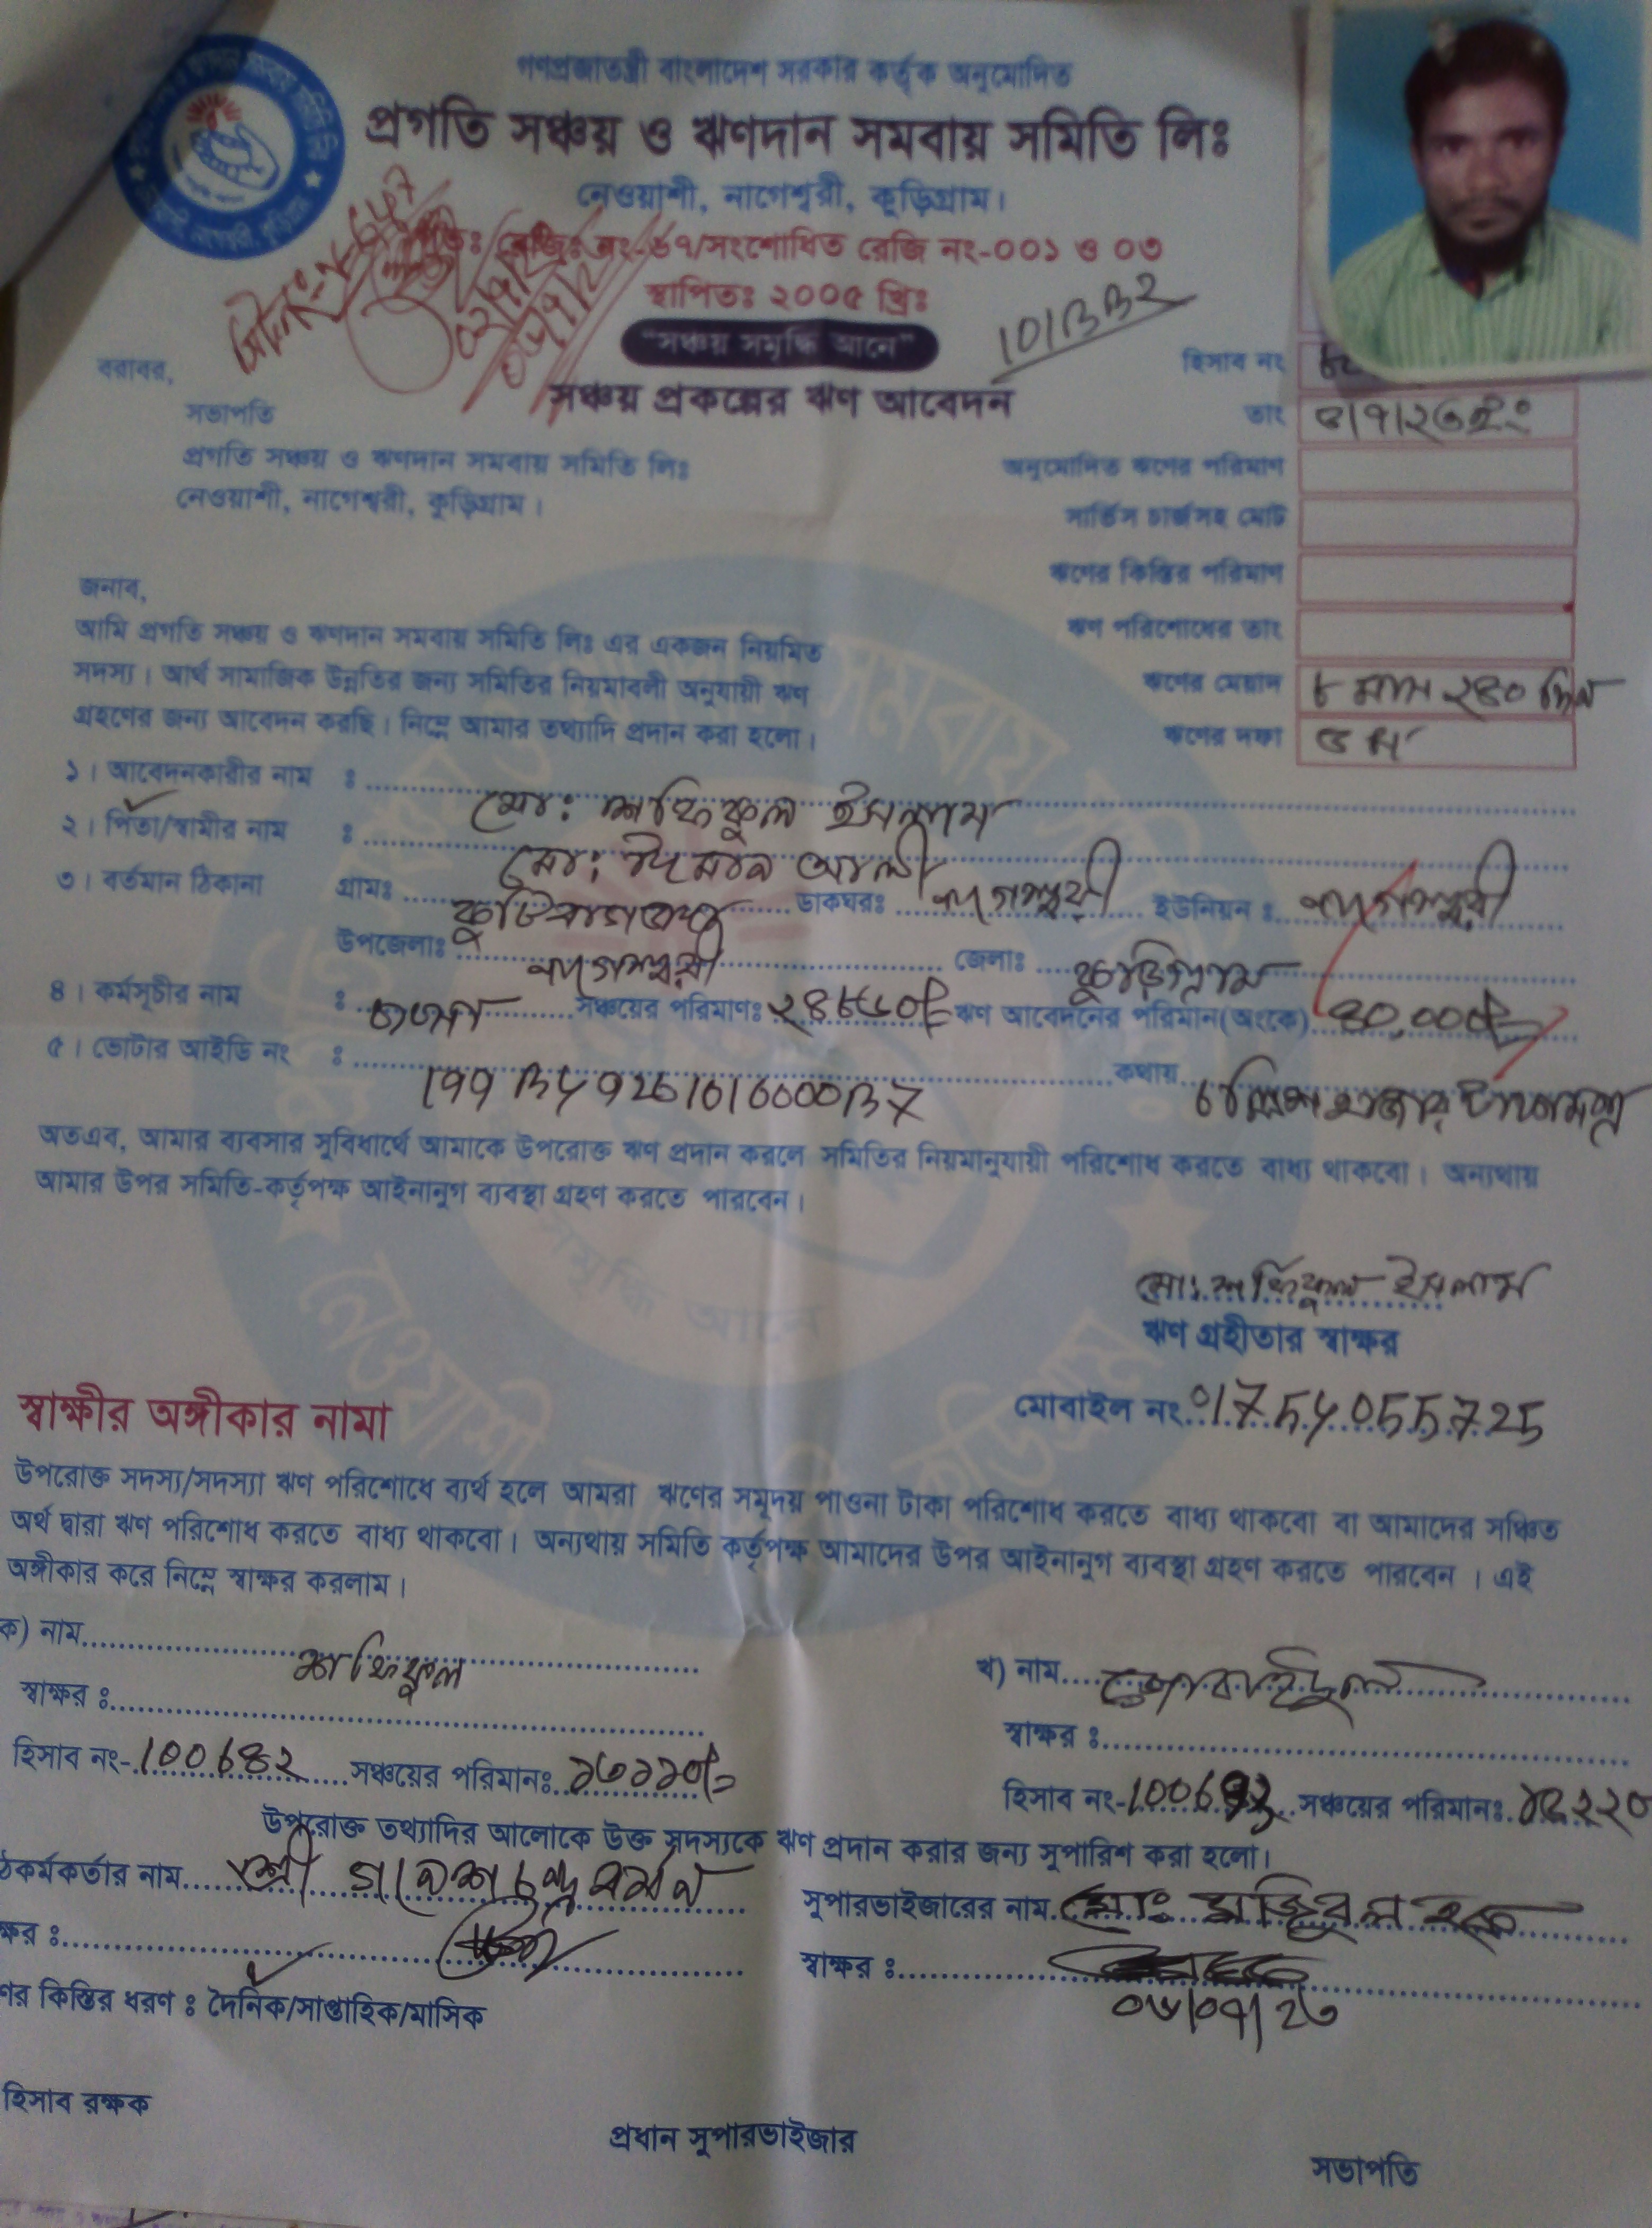 গণপ্রজাতন্ত্রী বাংলাদেশ সরকার কর্তৃক অনুমোদিত
প্রগতি সঞ্চয় ও ঋণদান সমবায় সমিতি লিঃ
নেওয়াশী, নাগেশ্বরী, কুড়িগ্রাম।
রেজিঃ নং-৬৭/সংশোধিত রেজি নং-০০১ ও ০৩
স্থাপিতঃ ২০০৫ খ্রিঃ
"সঞ্চয় সমৃদ্ধি আনে"
সঞ্চয় প্রকল্পের ঋণ আবেদন
হিসাব নং
তাং
অনুমোদিত ঋণের পরিমাণ
সার্ভিস চার্জসহ মোট
ঋণের কিস্তির পরিমাণ
ঋণ পরিশোধের তাং
ঋণের মেয়াদ ৮ মাস ২৪০ দিন
ঋণের দফা
বরাবর,
সভাপতি
প্রগতি সঞ্চয় ও ঋণদান সমবায় সমিতি লিঃ
নেওয়াশী, নাগেশ্বরী, কুড়িগ্রাম।
জনাব,
আমি প্রগতি সঞ্চয় ও ঋণদান সমবায় সমিতি লিঃ এর একজন নিয়মিত
সদস্য। আর্থ সামাজিক উন্নতির জন্য সমিতির নিয়মাবলী অনুযায়ী ঋণ
গ্রহণের জন্য আবেদন করছি। নিম্নে আমার তথ্যাদি প্রদান করা হলো।
১। আবেদনকারীর নাম : মো: শফিকুল ইসলাম
২। পিতা/স্বামীর নাম : মো: ঈমান আলী
৩। বর্তমান ঠিকানা গ্রামঃ ডাকঘরঃ নাগেশ্বরী ইউনিয়ন : নাগেশ্বরী
উপজেলাঃ নাগেশ্বরী জেলাঃ কুড়িগ্রাম
৪। কর্মসূচীর নাম : সঞ্চয়ের পরিমাণঃ ঋণ আবেদনের পরিমান(অংকে) ৪০,০০০/=
৫। ভোটার আইডি নং : কথায় চল্লিশ হাজার টাকা মাত্র
অতএব, আমার ব্যবসার সুবিধার্থে আমাকে উপরোক্ত ঋণ প্রদান করলে সমিতির নিয়মানুযায়ী পরিশোধ করতে বাধ্য থাকবো। অন্যথায়
আমার উপর সমিতি-কর্তৃপক্ষ আইনানুগ ব্যবস্থা গ্রহণ করতে পারবেন।
মো: শফিকুল ইসলাম
ঋণ গ্রহীতার স্বাক্ষর
মোবাইল নং 01754055725
স্বাক্ষীর অঙ্গীকার নামা
উপরোক্ত সদস্য/সদস্যা ঋণ পরিশোধে ব্যর্থ হলে আমরা ঋণের সমূদয় পাওনা টাকা পরিশোধ করতে বাধ্য থাকবো বা আমাদের সঞ্চিত
অর্থ দ্বারা ঋণ পরিশোধ করতে বাধ্য থাকবো। অন্যথায় সমিতি কর্তৃপক্ষ আমাদের উপর আইনানুগ ব্যবস্থা গ্রহণ করতে পারবেন। এই
অঙ্গীকার করে নিম্নে স্বাক্ষর করলাম।
ক) নাম
খ) নাম
স্বাক্ষর :
স্বাক্ষর :
হিসাব নং- সঞ্চয়ের পরিমানঃ
হিসাব নং- সঞ্চয়ের পরিমানঃ
উপরোক্ত তথ্যাদির আলোকে উক্ত সদস্যকে ঋণ প্রদান করার জন্য সুপারিশ করা হলো।
ঠকর্মকর্তার নাম শ্রী গনেশ চন্দ্র বর্মন
সুপারভাইজারের নাম মো: মজিবুল হক
ক্ষর :
স্বাক্ষর :
০৬/০৭/২৩
ণর কিস্তির ধরণ : দৈনিক/সাপ্তাহিক/মাসিক
হিসাব রক্ষক
প্রধান সুপারভাইজার
সভাপতি